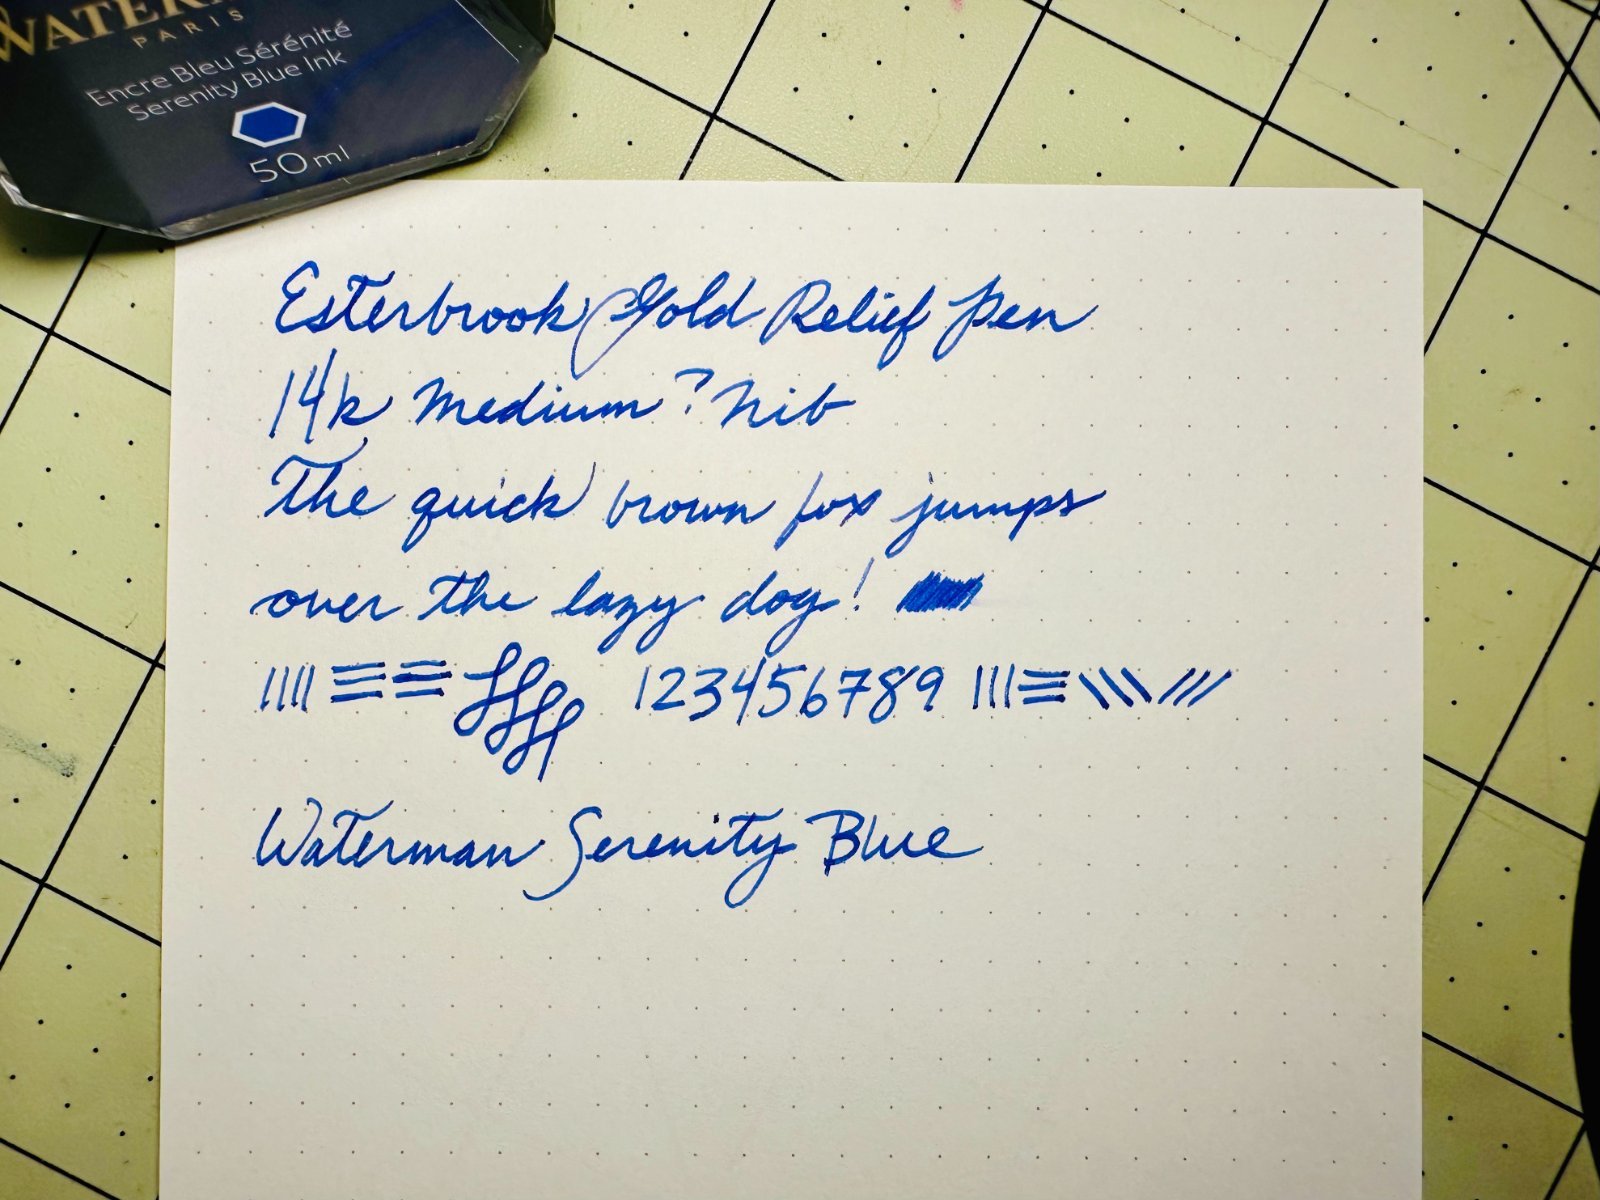 PARIS
Encre Bleu Sérénité
Serenity Blue Ink
50ml
Esterbrook Gold Relief Pen
14k Medium? Nib
The quick brown fox jumps
over the lazy dog!
123456789
Waterman Serenity Blue